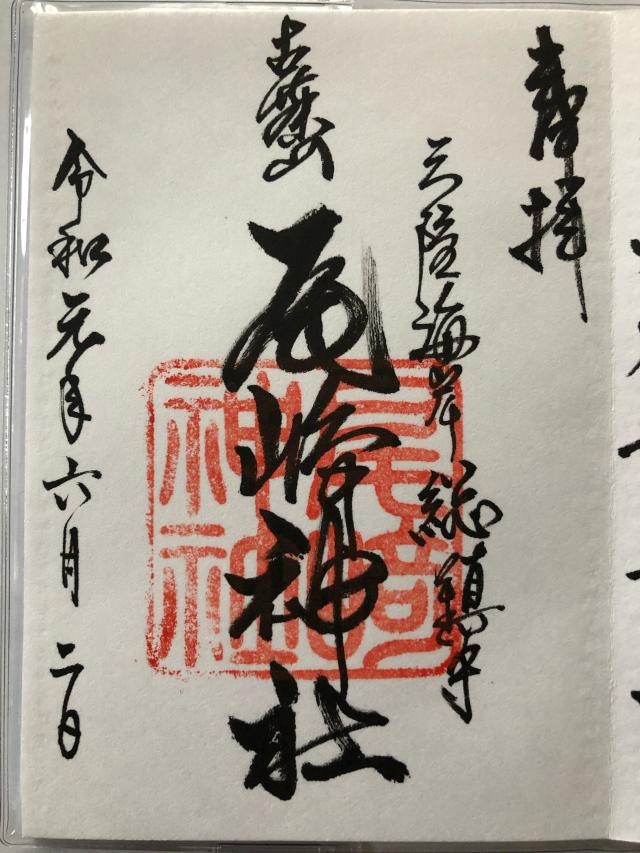 奉拝
三陸海岸総鎮守
尾崎神社
令和元年六月二日
尾崎
神社